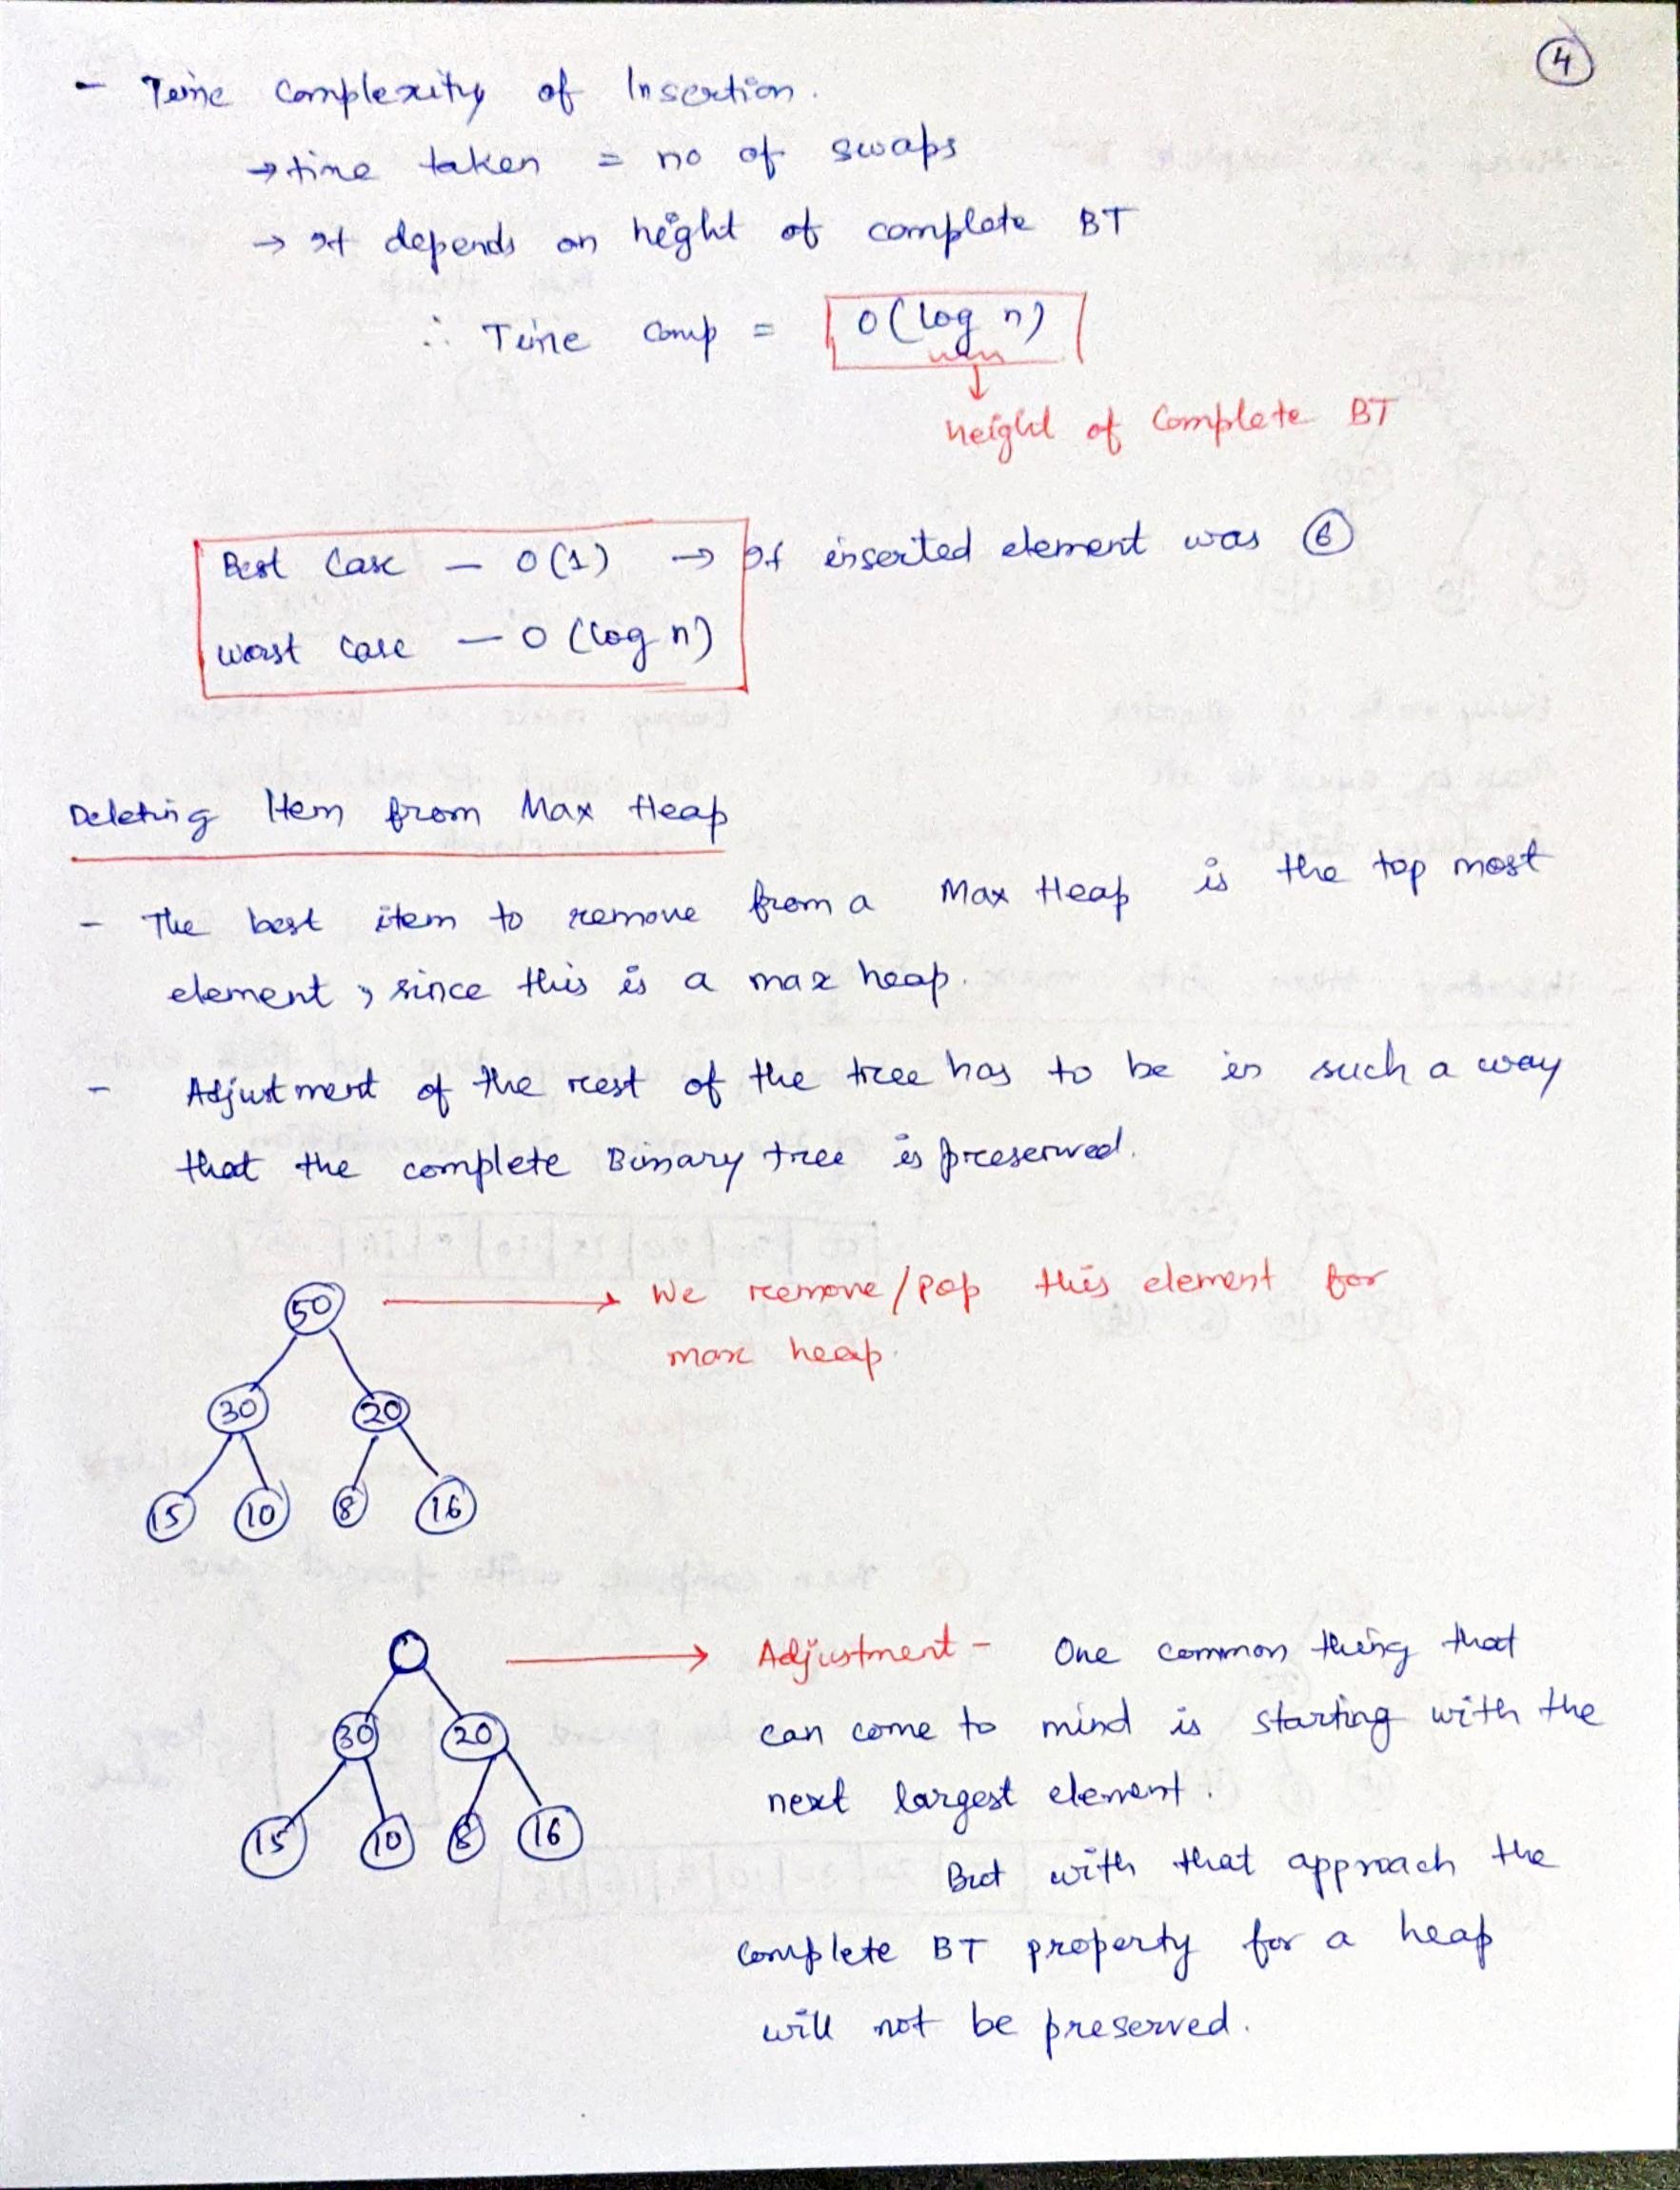 4
- Time Complexity of Insertion.
→ time taken = no of swaps
→ It depends on height of complete BT
∴ Time Comp = O(log n)
height of Complete BT
Best Case — O(1) → If inserted element was 6
Worst Case — O(log n)
Deleting Item from Max Heap
- The best item to remove from a Max Heap is the top most
element, since this is a max heap.
- Adjustment of the rest of the tree has to be in such a way
that the complete Binary tree is preserved.
50 → We remove/pop this element for
max heap.
30 20
15 10 8 16
→ Adjustment - One common thing that
can come to mind is starting with the
30 20
next largest element.
15 10 8 16
But with that approach the
Complete BT property for a heap
will not be preserved.